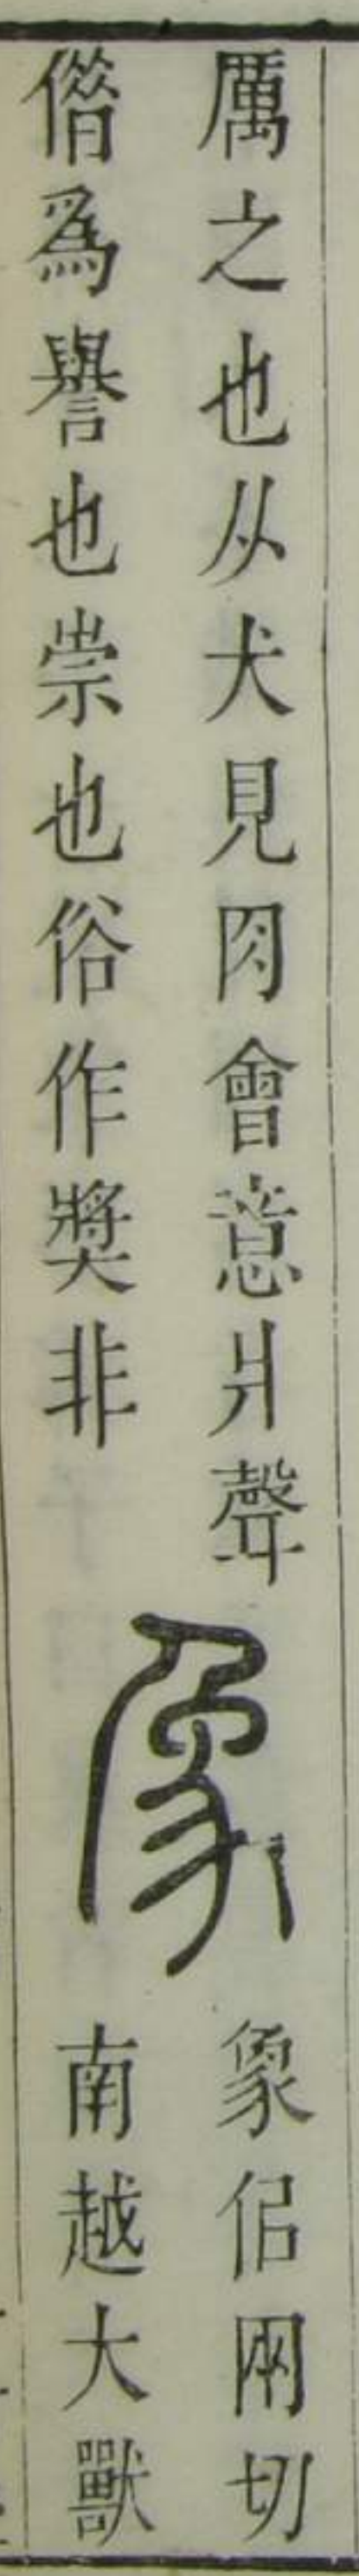 厲之也从犬見肉會意爿聲
偺爲譽也崇也俗作獎非
象
象侣兩切
南越大獸